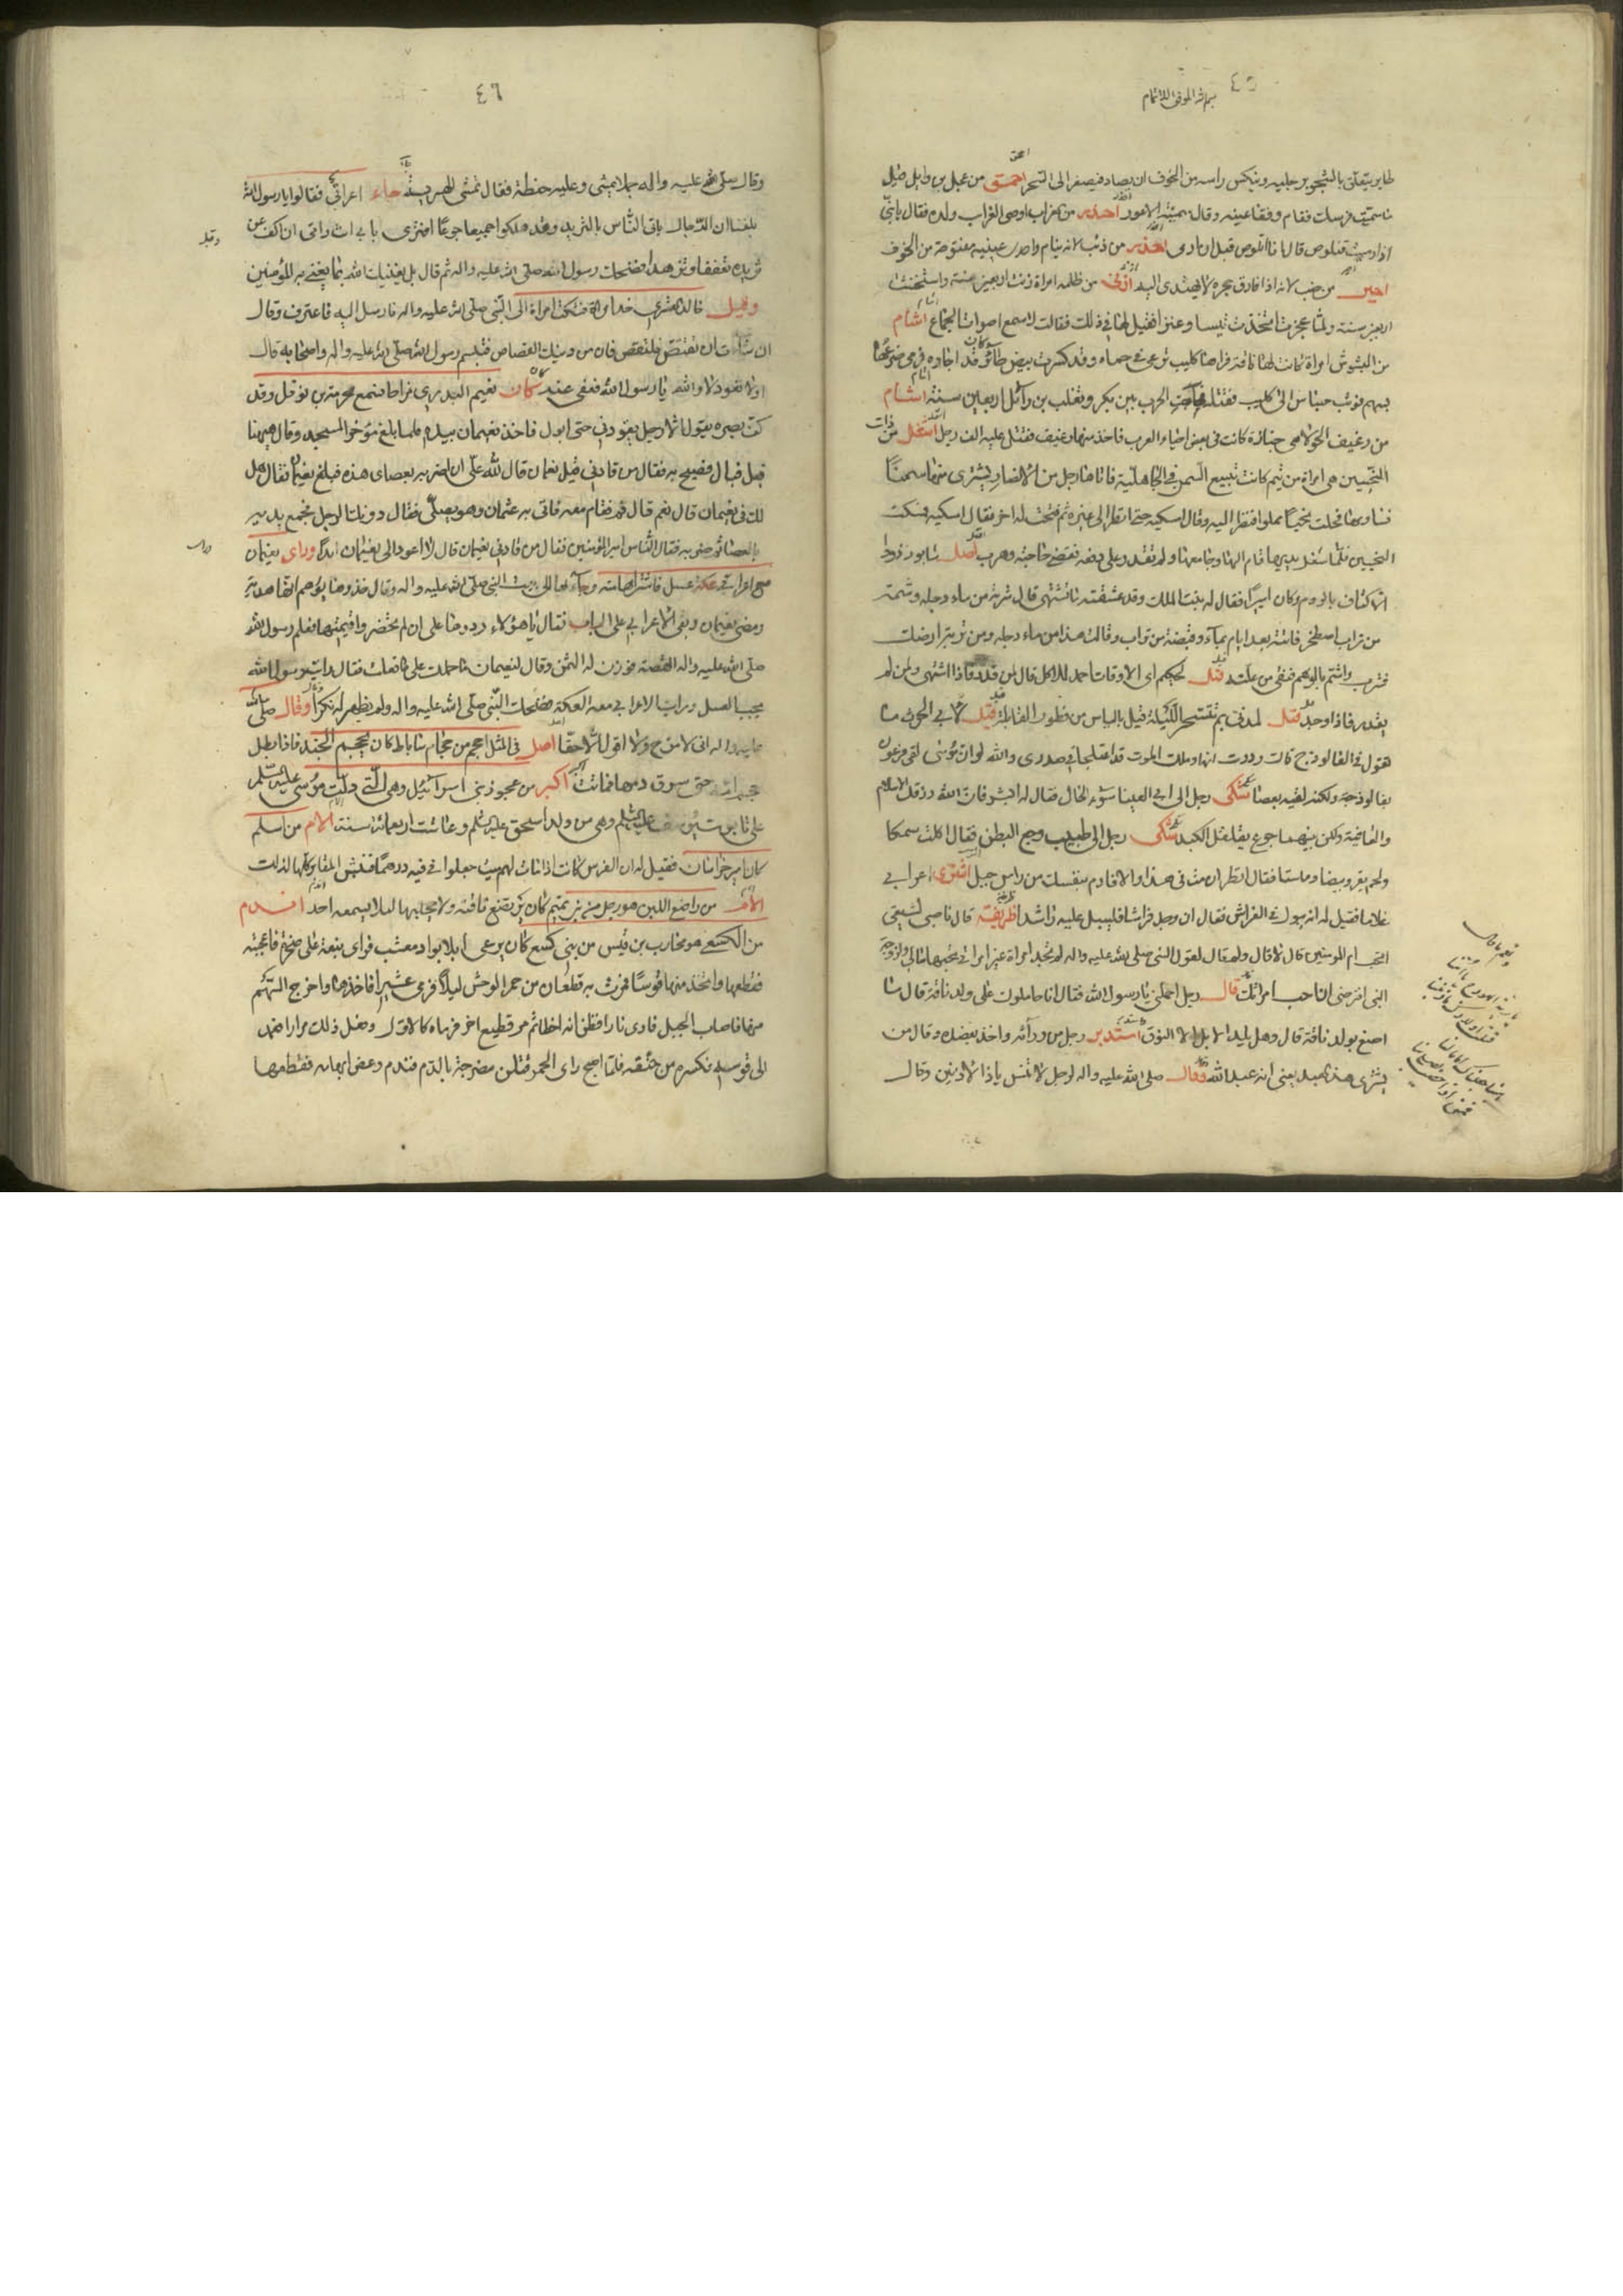 ٤٥
طاير يتعلق بالشجر برجليه وينكس راسه من الخوف ان يصاد فيصفر الى السحر احمق من عجل بن وايل قيل
ما سميت فرسك فقام وفقأ عينه وقال سميته الاعور احذر من غراب اوصى الغراب ولده فقال يا بنى
اذا رميت فتلوص قال انا اتلوص قبل ان ارمى احذر من ذئب لانه ينام واحدى عينيه مفتوحة من الخوف
احير من ضب لانه اذا فارق جحره لا يهتدى اليه ازنى من ظلمه امراة زنت اربعين سنة واستخنثت
اربعين سنة ولما عجزت اتخذت تيسا وعنزا فقيل لها فى ذلك فقالت لاسمع اصوات الجماع اشام
من البسوس امراة كانت لها ناقة فراها كليب ترعى فى حماه وقد كسرت بيض طائر قد اجاره فرمى ضرعها
بسهم فوثب جساس الى كليب فقتله فهاجت الحرب بين بكر وتغلب بن وائل اربعين سنة اشام
من رغيف الحولاء هى خبازة كانت فى بعض احياء العرب فاخذ منها رغيف فقتل عليه الف رجل اشغل من ذات
النحيين هى امراة من تيم كانت تبيع السمن فى الجاهلية فاتاها رجل من الانصار يشترى منها سمنا
فساومها فحلت نحيا مملوا فنظر اليه وقال امسكيه حتى انظر الى غيره ثم فتحت له اخر فقال امسكيه فمسكت
النحيين فلما شغل يديها قام اليها وجامعها ولم تقدر على دفعه فقضى حاجته وهرب اصل شابور ذو
الاكتاف بالروم وكان اسيرا فقال له بنت الملك وقد عشقته ما تشتهى قال شربة من ماء دجلة وشمة
من تراب اصطخر فاتته بعد ايام بماء وقبضة من تراب وقالت هذا من ماء دجلة ومن تربة ارضك
فشرب واشتم بالوهم فنقى من علته قيل لحكيم اى الاوقات احمد للاكل قال لمن قدر فاذا اشتهى ولمن لم
يقدر فاذا وجد قيل لمدنى بم تتسحر الليلة قيل بالياس من فطور القابلة قيل لابى الحرث ما
تقول فى الفالوذج قال وددت انها وملك الموت قد اعتلجا فى صدرى والله لو ان موسى لقى فرعون
بفالوذجة ولكنه لقيه بعصا شكى رجل الى ابى العينا سوء الحال فقال له ابشر فان الله رزقك الاسلام
والعافية ولكن بينهما جوع يقلقل الكبد شكى رجل الى طبيب وجع البطن فقال اكلت سمكا
ولحم بقر وبيضا وماستا فقال انظر ان مت فى هذا والا فارم بنفسك من راس جبل اشترى اعرابى
غلاما فقيل له انه يبول فى الفراش فقال ان وجد فراشا فليبل عليه راشدا ظريفة قال ناصبى لشيعى
اتحب ام المومنين قال لا قال ولم قال لقول النبى صلى الله عليه واله لم تجد امراة غير امراتى تحبها مالى ولزوجة
النبى افترضى ان احب امراتك قال رجل احملنى يا رسول الله فقال انا حاملوك على ولد ناقة قال ما
اصنع بولد ناقة قال وهل يلد الابل الا النوق استدبر رجل من ورائه واخذ بعضده وقال من
يشترى هذا العبد يعنى انه عبد الله وقال صلى الله عليه واله لرجل لا تنس يا ذا الاذنين وقال
٤٦
وقال صلى الله عليه واله بجملا يمشى وعليه حنطة فقال تمشى الهريسة جاء اعرابى فقالوا يا رسول الله
بلغنا ان الدجال ياتى الناس بالثريد وقد هلكوا جميعا جوعا افترى بابى انت وامى ان اكف عن
ثريده تعففا وتزهدا فضحك رسول الله صلى الله عليه واله ثم قال بل يغنيك الله بما يغنى به المؤمنين
وقيل خالد القشرى امراة فشكت امراة الى النبى صلى الله عليه واله فارسل اليه فاعترف وقال
ان شاءت ان تقتص فلتقص فان من دينك القصاص فتبسم رسول الله صلى الله عليه واله واصحابه قال
اولا تعود لا والله يا رسول الله فعفى عنه كان نعيم البدرى مزاحا فسمع محرمة بن نوفل وقد
كف بصره يقول الا رجل يقودنى حتى ابول فاخذ نعيمان بيده فلما بلغ مؤخر المسجد وقال ههنا
فبل فبال فصيح به فقال من قادنى قيل نعمان قال لله على ان اضربه بعصاى هذه فبلغ نعيمان فقال هل
لك فى نعيمان قال نعم قال قم فقام معه فاتى به عثمان وهو يصلى فقال دونك الرجل فجمع يديه
بالعصا ثم ضربه فقال الناس امير المؤمنين فقال من قادنى نعيمان قال لا اعود الى نعيمان ابدا وراى نعيمان
مع اعرابى عكة عسل فاشتراها منه وجاء بها الى بيت النبى صلى الله عليه واله وقال خذوها يوهم انها هدية
ومضى نعيمان وبقى الاعرابى على الباب فقال يا هؤلاء ردوها على ان لم تحضر واقيمتها فعلم رسول الله
صلى الله عليه واله القصة فوزن له الثمن وقال لنعيمان ما حملك على ما فعلت فقال رايت رسول الله
يحب العسل ورايت الاعرابى معه العكة فضحك النبى صلى الله عليه واله ولم يظهر له نكرا وقال صلى الله
عليه واله انى لامزح ولا اقول الا حقا اصل فى المثل احجم من حجام ساباط كان يحجم الجند فاذا بطل
حجم امه حتى سوق دمها فماتت اكبر من عجوز بنى اسرائيل وهى التى دلت موسى عليه السلم
على تابوت يوسف عليه السلم وهى من ولد اسحق عليه السلم وعاشت اربعمائة سنة الام من اسلم
كان امير خراسان فقيل له ان الفرس كانت اذا مات لهم ميت جعلوا فى فيه درهما فنبش المقابر كلها لذلك
الام من راضع اللبن هو رجل من بنى تميم كان يرتضع ناقته ولا يحلبها لئلا يسمعه احد اندم
من الكسعى هو محارب بن قيس من بنى كسع كان يرعى ابلا بواد معشب فراى نبعة على صخرة فاعجبته
فقطعها واتخذ منها قوسا فمرت به قطعان من حمر الوحش ليلا فرمى عشيرا فاخذها واخرج السهم
منها فاصاب الجبل فاورى نارا فظن انه اخطا ثم مر قطيع اخر فرماه كالاول وفعل ذلك مرارا فعمد
الى قوسه فكسره من حنقه فلما اصبح راى الحمر قتلن مضرجة بالدم فندم وعض ابهامه فقطعها